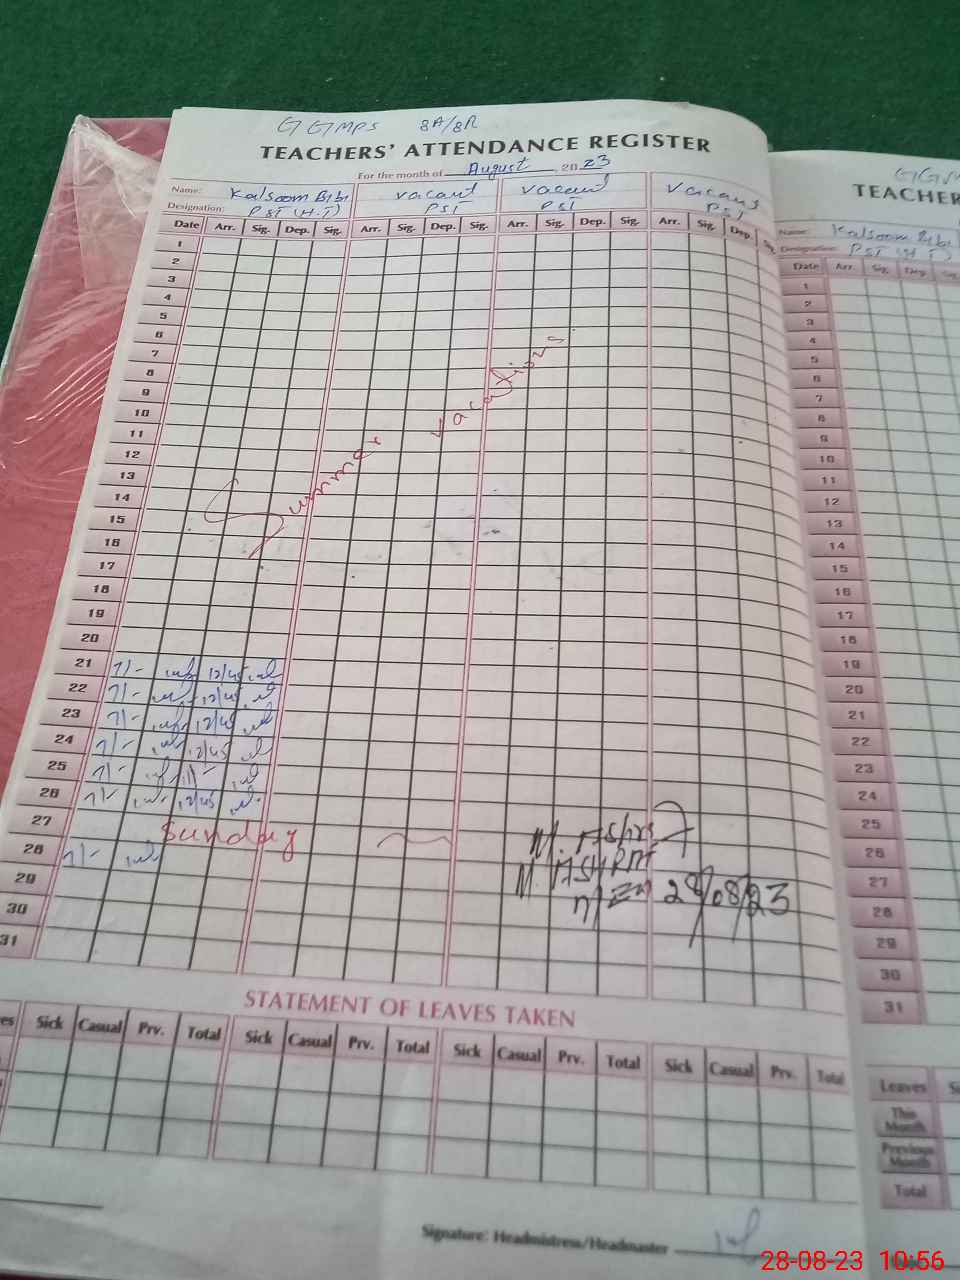 GGMPS 8A/8R
TEACHERS' ATTENDANCE REGISTER
For the month of August, 2023
Name: Kalsoom Bibi vacant vacant vacant
Designation: PST (H.T) PST PST PST
Date Arr. Sig. Dep. Sig. Arr. Sig. Dep. Sig. Arr. Sig. Dep. Sig. Arr. Sig. Dep. Sig.
1
2
3
4
5
6
7
8
9
10
11
12
13
14
15
16
17
18
19
20
Summer vacations
21 7/- 12/45
22 7/- 12/45
23 7/- 12/45
24 7/- 12/45
25 7/- 11/-
26 7/- 12/45
27 Sunday
28 7/-
29
30
31
28/08/23
STATEMENT OF LEAVES TAKEN
Sick Casual Prv. Total Sick Casual Prv. Total Sick Casual Prv. Total Sick Casual Prv. Total
Signature: Headmistress/Headmaster
TEACHER
Name: Kalsoom Bibi
Designation: PST (H.T)
Date Arr. Sig. Dep. Sig.
1
2
3
4
5
6
7
8
9
10
11
12
13
14
15
16
17
18
19
20
21
22
23
24
25
26
27
28
29
30
31
Leaves
This Month
Previous Month
Total
28-08-23 10:56